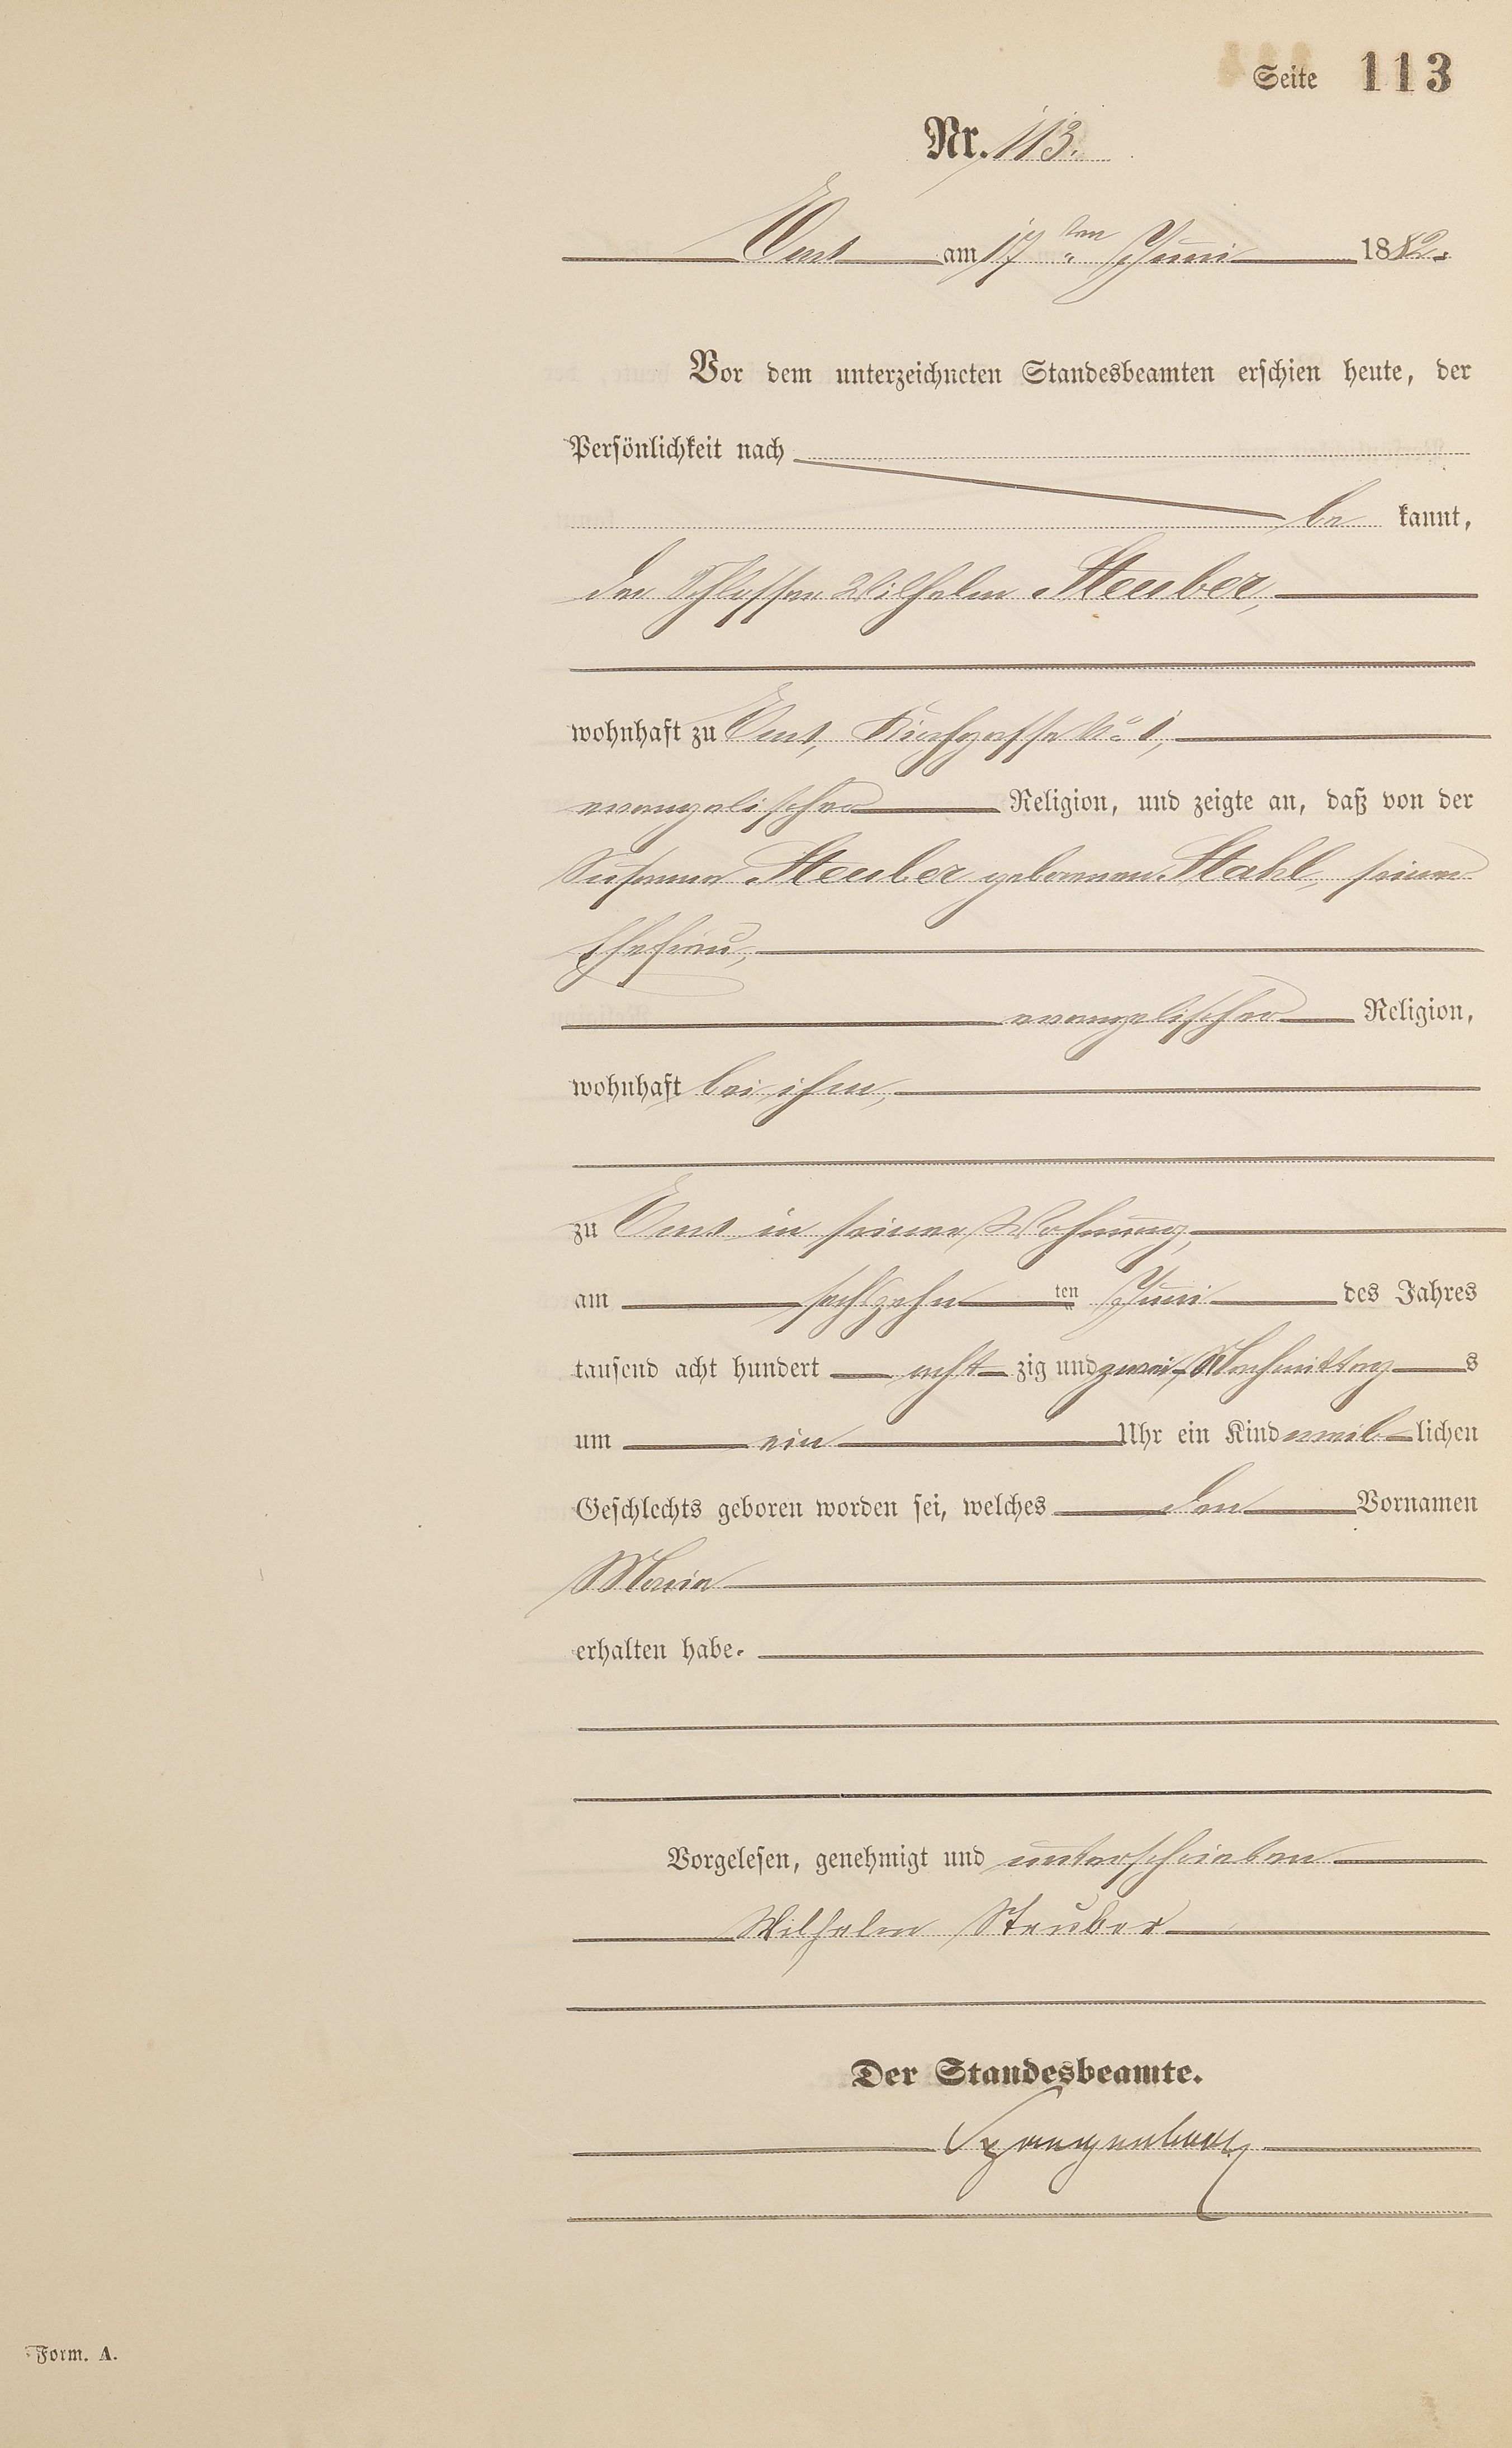 Seite 113
Nr. 113.
Ems am 17ten Juni 1882.
Vor dem unterzeichneten Standesbeamten erschien heute, der
Persönlichkeit nach
be kannt,
der Schlosser Wilhelm Steuber,
wohnhaft zu Ems, Kirchgasse No 1,
evangelischer Religion, und zeigte an, daß von der
Susanna Steuber geborenen Stahl, seiner
Ehefrau,
evangelischer Religion,
wohnhaft bei ihm,
zu Ems in seiner Wohnung,
am sechszehn ten Juni des Jahres
tausend acht hundert acht zig und zwei, Nachmittag s
um ein Uhr ein Kind weib lichen
Geschlechts geboren worden sei, welches den Vornamen
Maria
erhalten habe.
Vorgelesen, genehmigt und unterschrieben
Wilhelm Steuber
Der Standesbeamte.
Form. A.